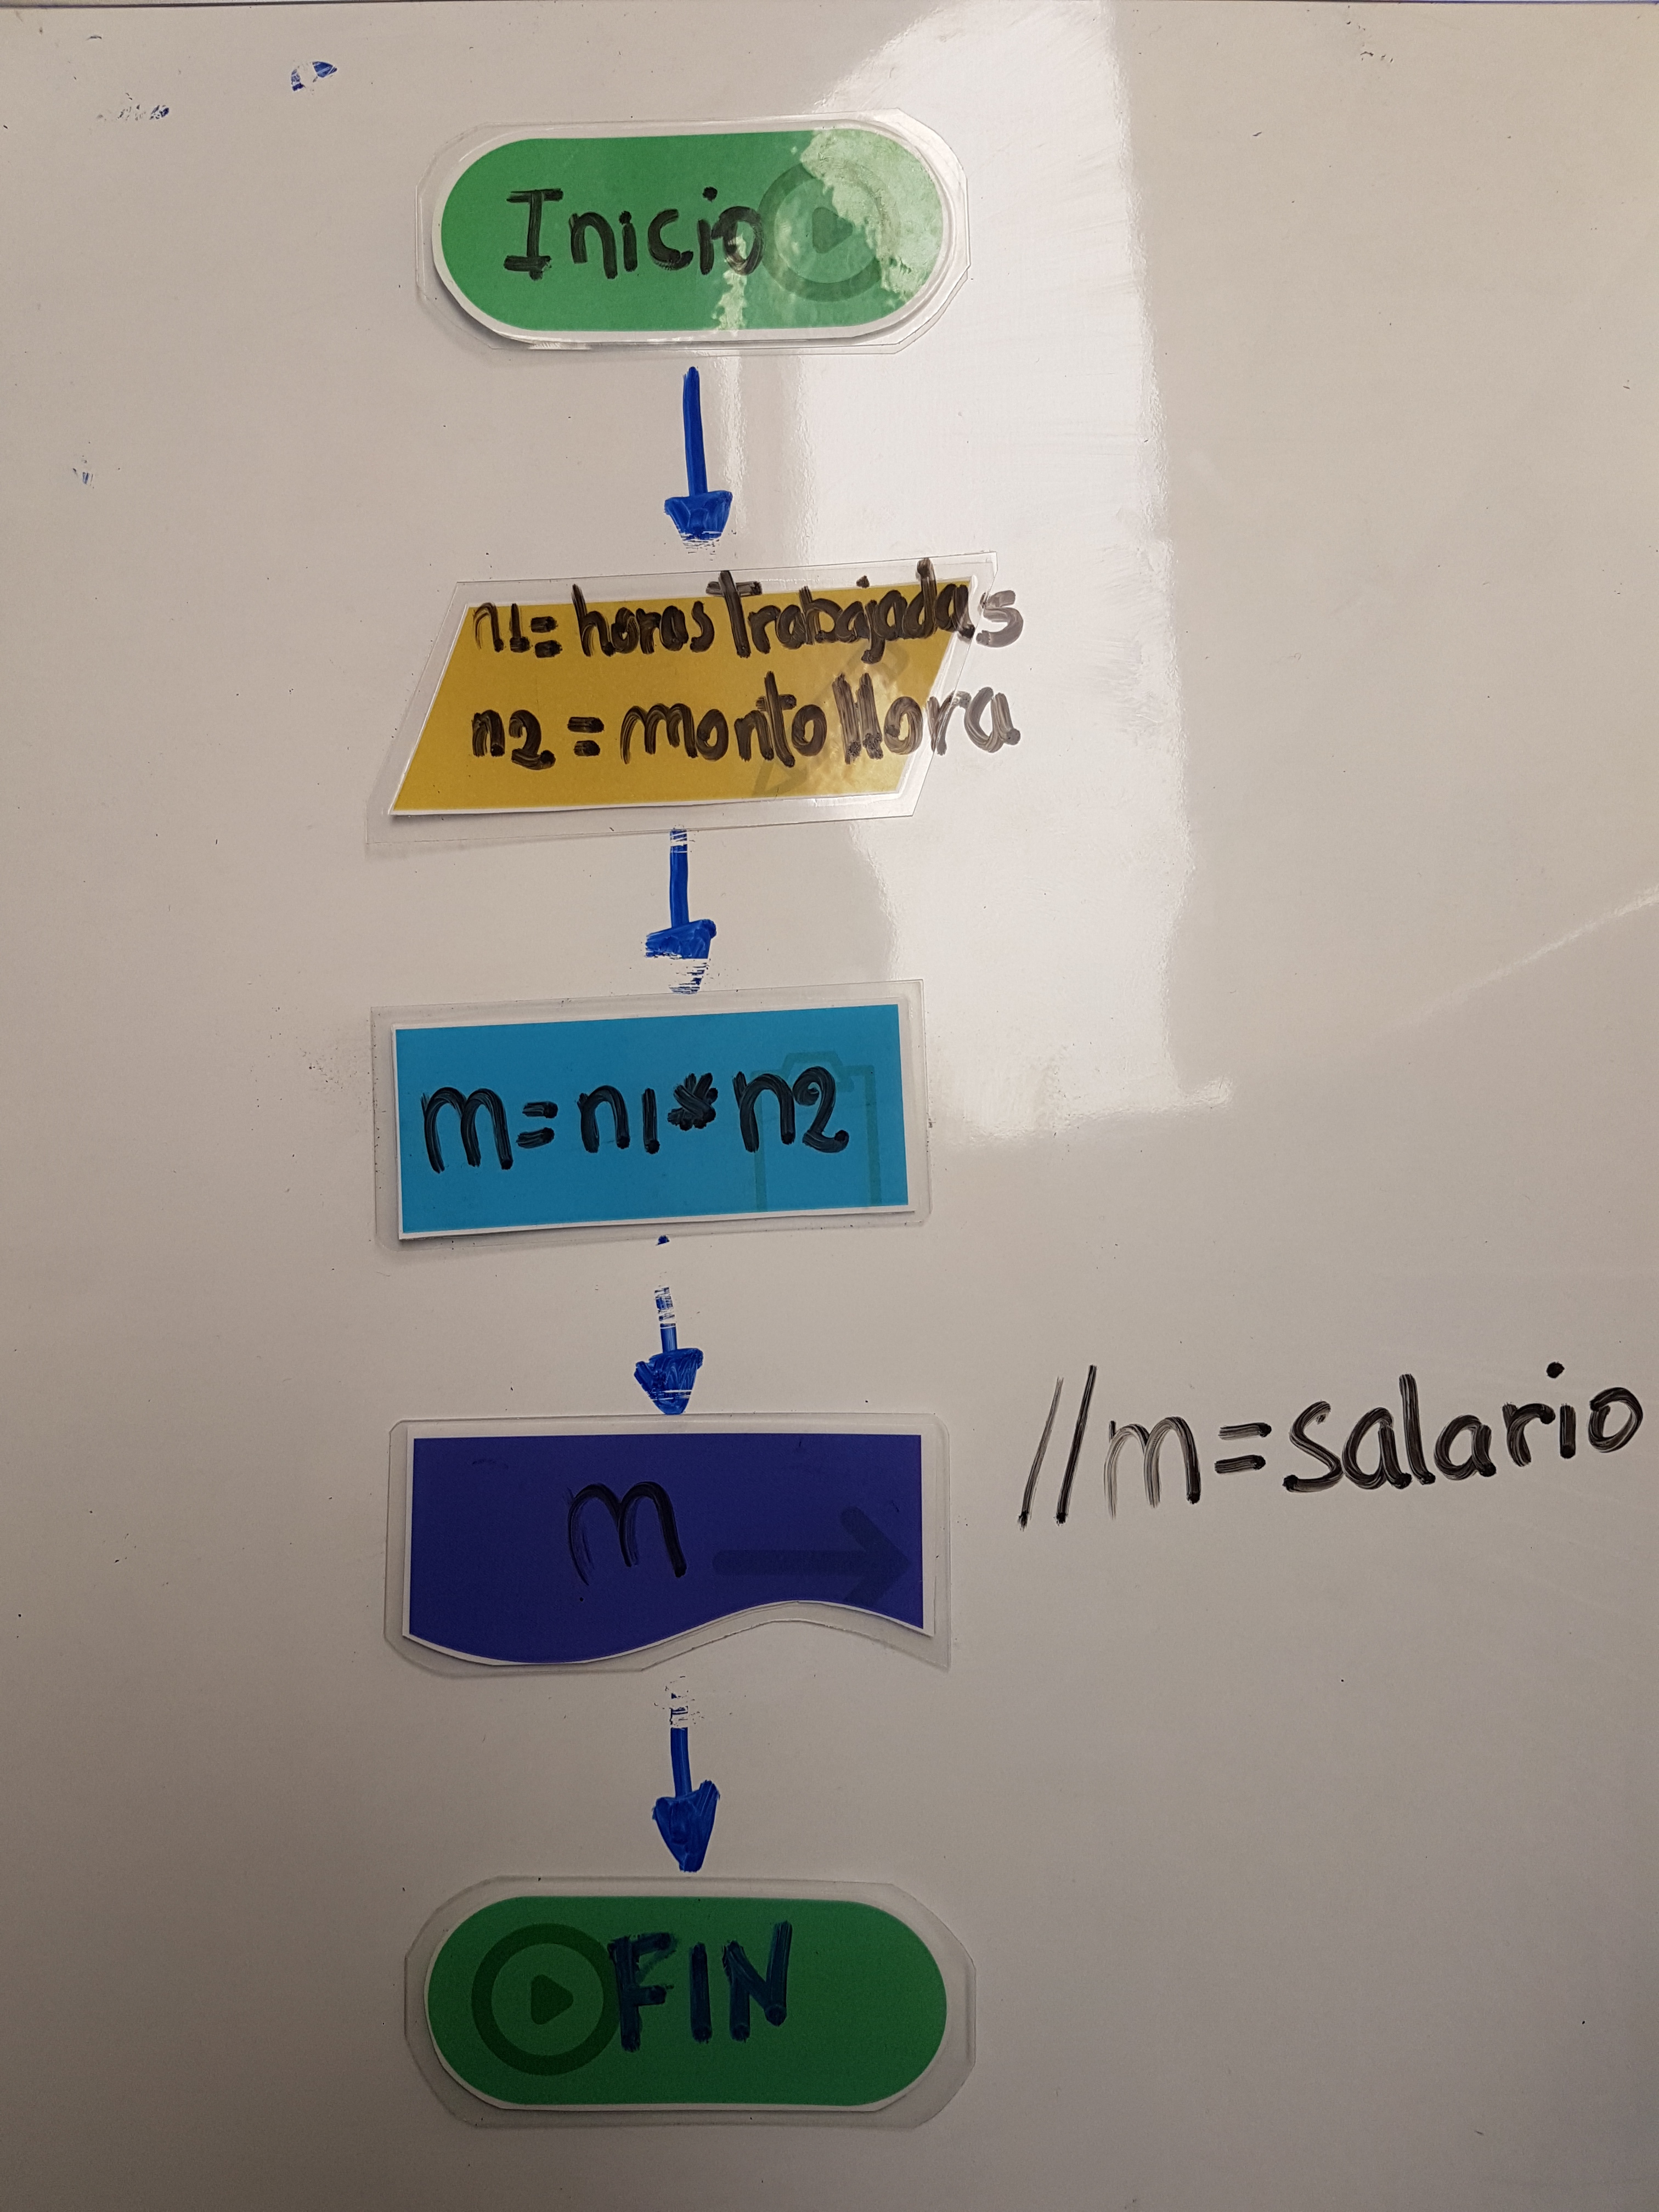 Inicio
n1= horas Trabajadas
n2 = monto Hora
m=n1*n2
m
//m=salario
FIN